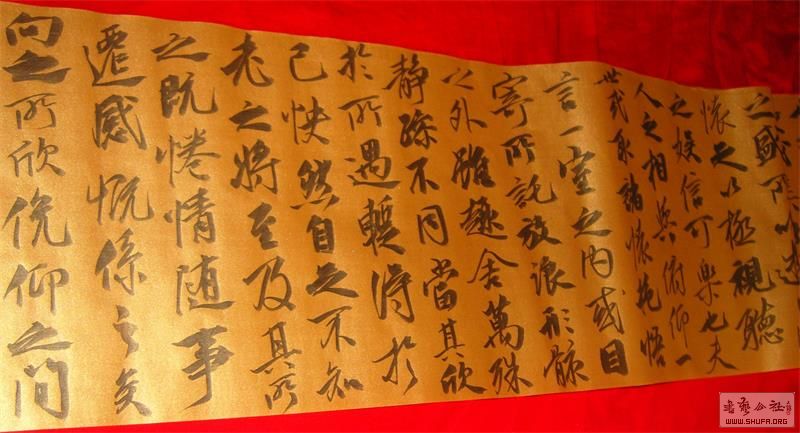 之盛所以遊
懷足以極視聽
之娛信可樂也夫
人之相與俯仰一
世或取諸懷抱悟
言一室之內或因
寄所託放浪形骸
之外雖趣舍萬殊
靜躁不同當其欣
於所遇暫得於
己快然自足不知
老之將至及其所
之既惓情随事
遷感慨係之矣
向之所欣俛仰之間
书艺公社
WWW.SHUFA.ORG